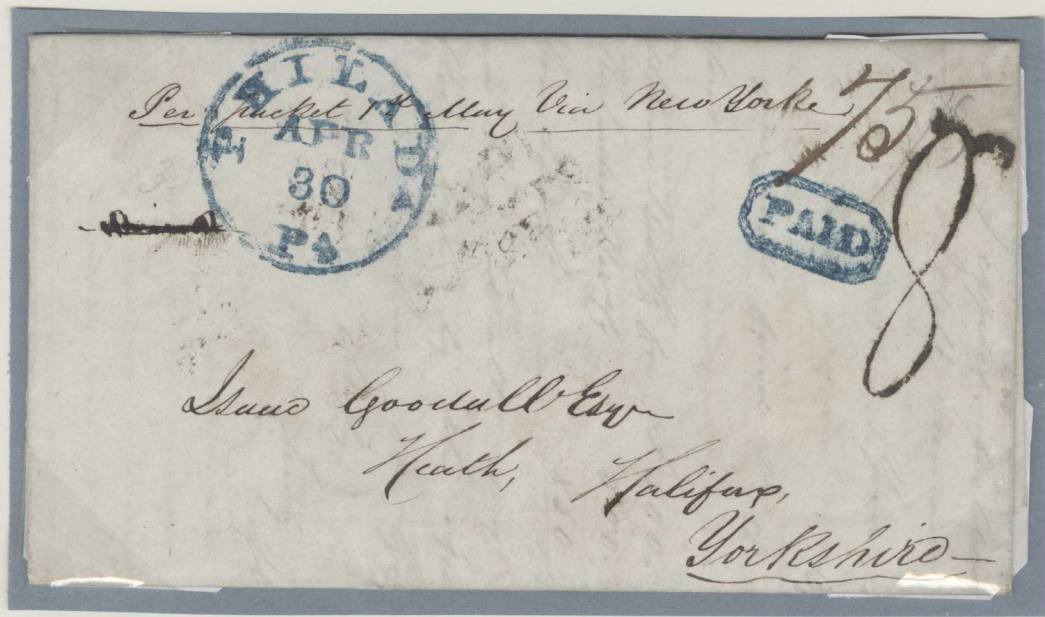 PHILADA
Per packet 1st May Via New Yorke
APR
30
Pa
75
PAID
8
Isaac Goodall Esqr
Heath, Halifax,
Yorkshire